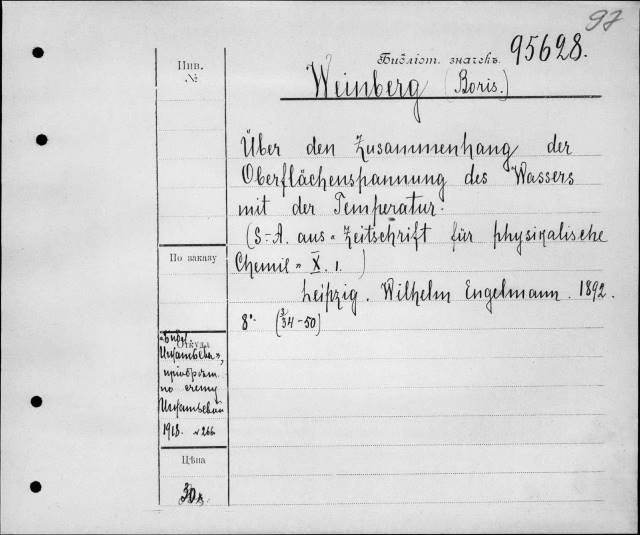 97
Инв. №
Библіот. значекъ. 95628.
Weinberg (Boris.)
Über den Zusammenhang der
Oberflächenspannung des Wassers
mit der Temperatur.
(S.-A. aus « Zeitschrift für physikalische
Chemie » X. 1. )
Leipzig. Wilhelm Engelmann. 1892.
8°. (34-50)
По заказу
Откуда
пріобрѣт.
по счету
1918. № 266
Цѣна
30 к